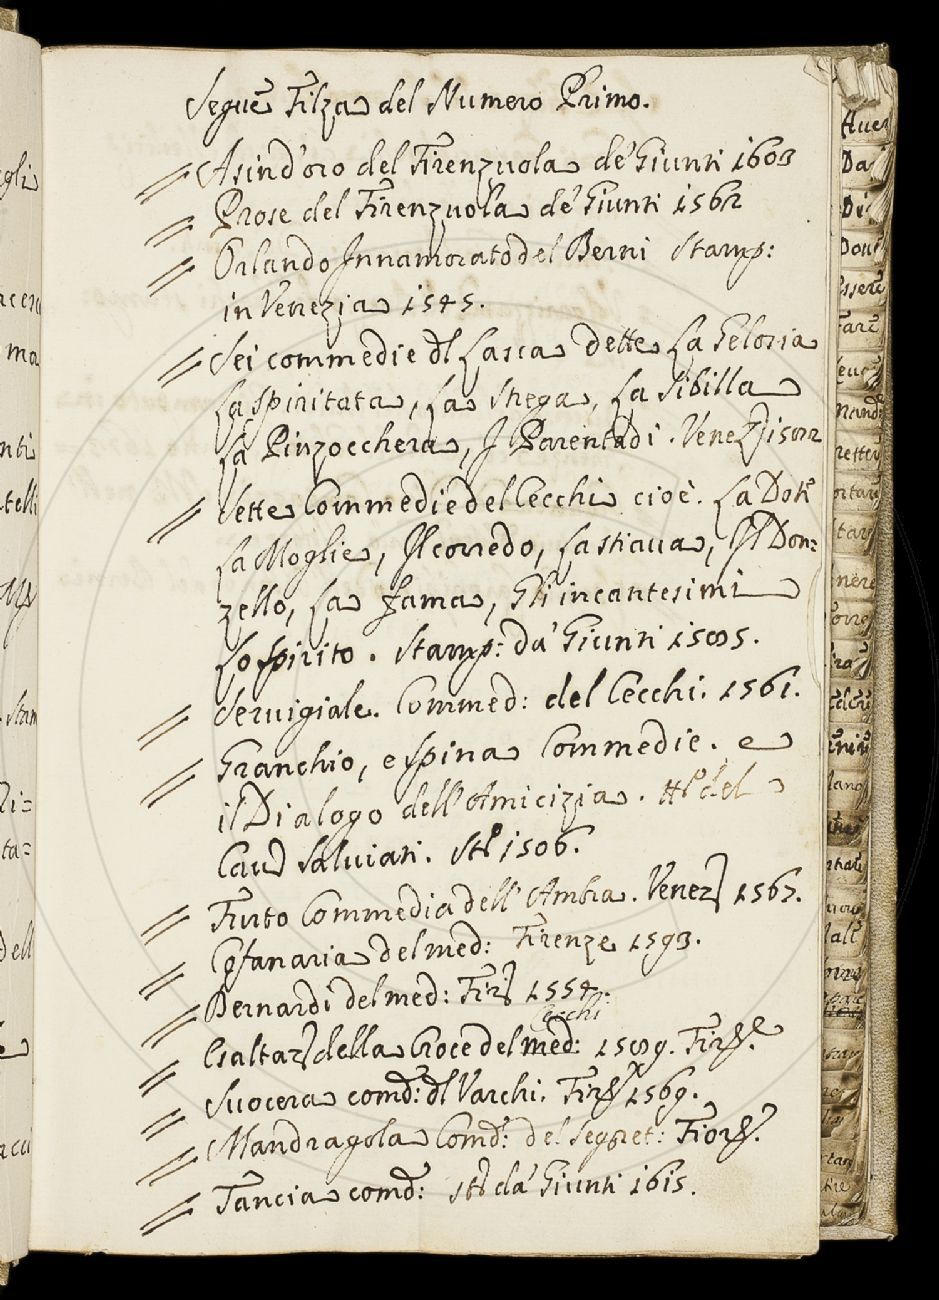 Segue Filza del Numero Primo.
Asin d'oro del Firenzuola de' Giunti 1603
Prose del Firenzuola de' Giunti 1562
Orlando Innamorato del Berni Stamp:
in Venezia 1545.
Sei commedie dl Lasca dette La Gelosia
La Spiritata, La Strega, La Sibilla
La Pinzocchera, I Parentadi. Venez 1582
Sette Commedie del Cecchi cioè. La Dote
La Moglie, Il corredo, La stiava, Il Don:
zello, La Jama, Gli incantesimi
Lo spirito. Stamp: da' Giunti 1585.
Servigiale. Commed: del Cecchi. 1561.
Granchio, e Spina Commedie. e
il Dialogo dell' Amicizia. del
Cav Salviati. 1506.
Furto Commedia dell' Ambra. Venez 1567.
Cofanaria del med: Firenze 1593.
Bernardi del med: Fir 1554.
Cecchi
Esaltaz della Croce del med: 1589. Firze.
Suocera comd: dl Varchi. Firze 1569.
Mandragola Comd: del Segret: Fiorze.
Tancia comd: da' Giunti 1615.